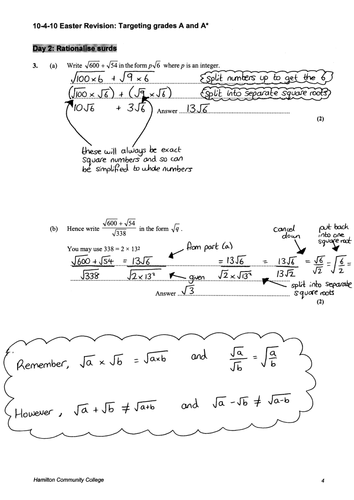 10-4-10 Easter Revision: Targeting grades A and A*
Day 2: Rationalise surds
3. (a) Write √600 + √54 in the form p√6 where p is an integer.
√100×6 + √9×6 split numbers up to get the 6
(√100 × √6) + (√9 × √6) split into separate square roots
10√6 + 3√6 Answer 13√6
(2)
these will always be exact
square numbers and so can
be simplified to whole numbers
(b) Hence write (√600 + √54)/√338 in the form √q.
cancel down
put back into one square root
You may use 338 = 2 × 13²
from part (a)
(√600 + √54)/√338 = 13√6/√(2×13²) = 13√6/(√2×√13²) = 13√6/13√2 = √6/√2 = √(6/2) =
given
split into separate
square roots
Answer √3
(2)
Remember, √a × √b = √a×b and √a/√b = √(a/b)
However, √a + √b ≠ √a+b and √a - √b ≠ √a-b
Hamilton Community College 4